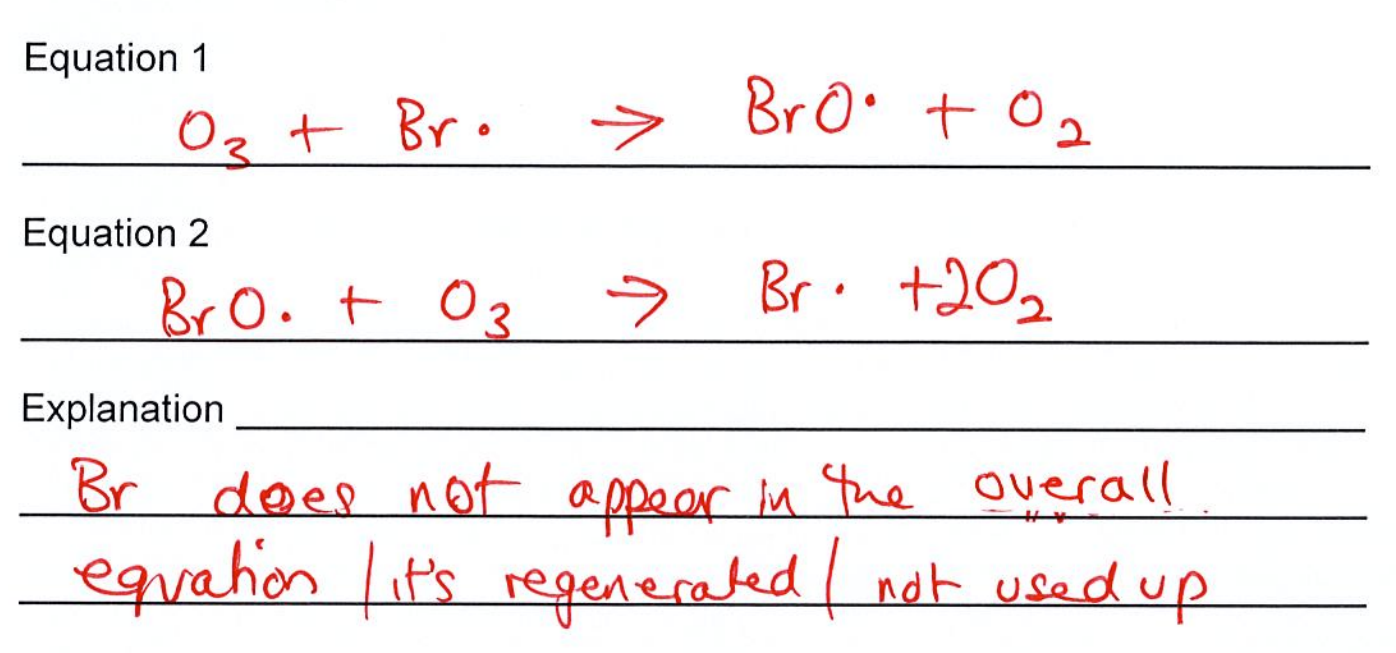 Equation 1
O₃ + Br• → BrO• + O₂
Equation 2
BrO• + O₃ → Br• +2O₂
Explanation
Br does not appear in the overall
equation / it's regenerated / not used up